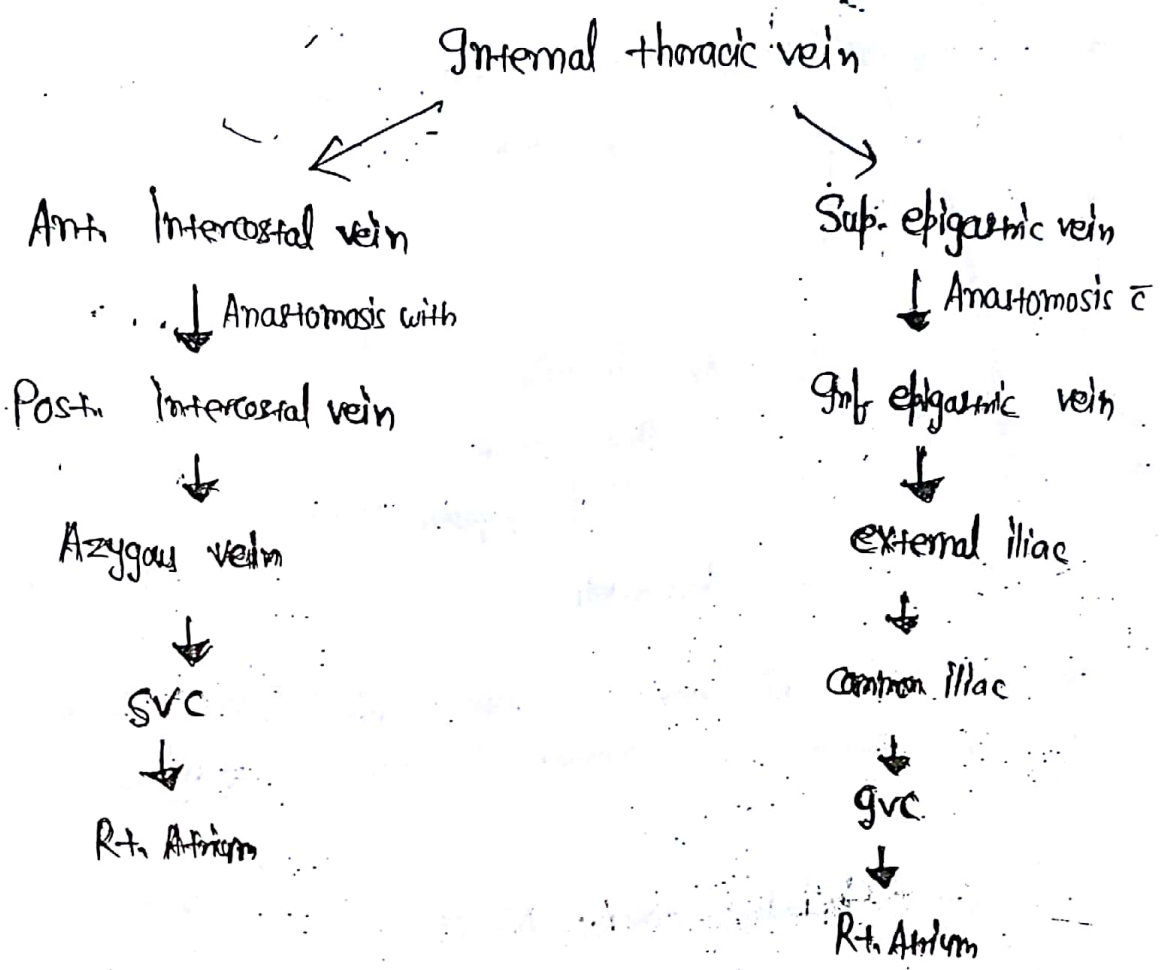 Internal thoracic vein
Ant. Intercostal vein
Anastomosis with
Post. Intercostal vein
Azygous vein
SVC
Rt. Atrium
Sup. epigastric vein
Anastomosis c̄
Inf epigastric vein
external iliac
common iliac
IVC
Rt. Atrium